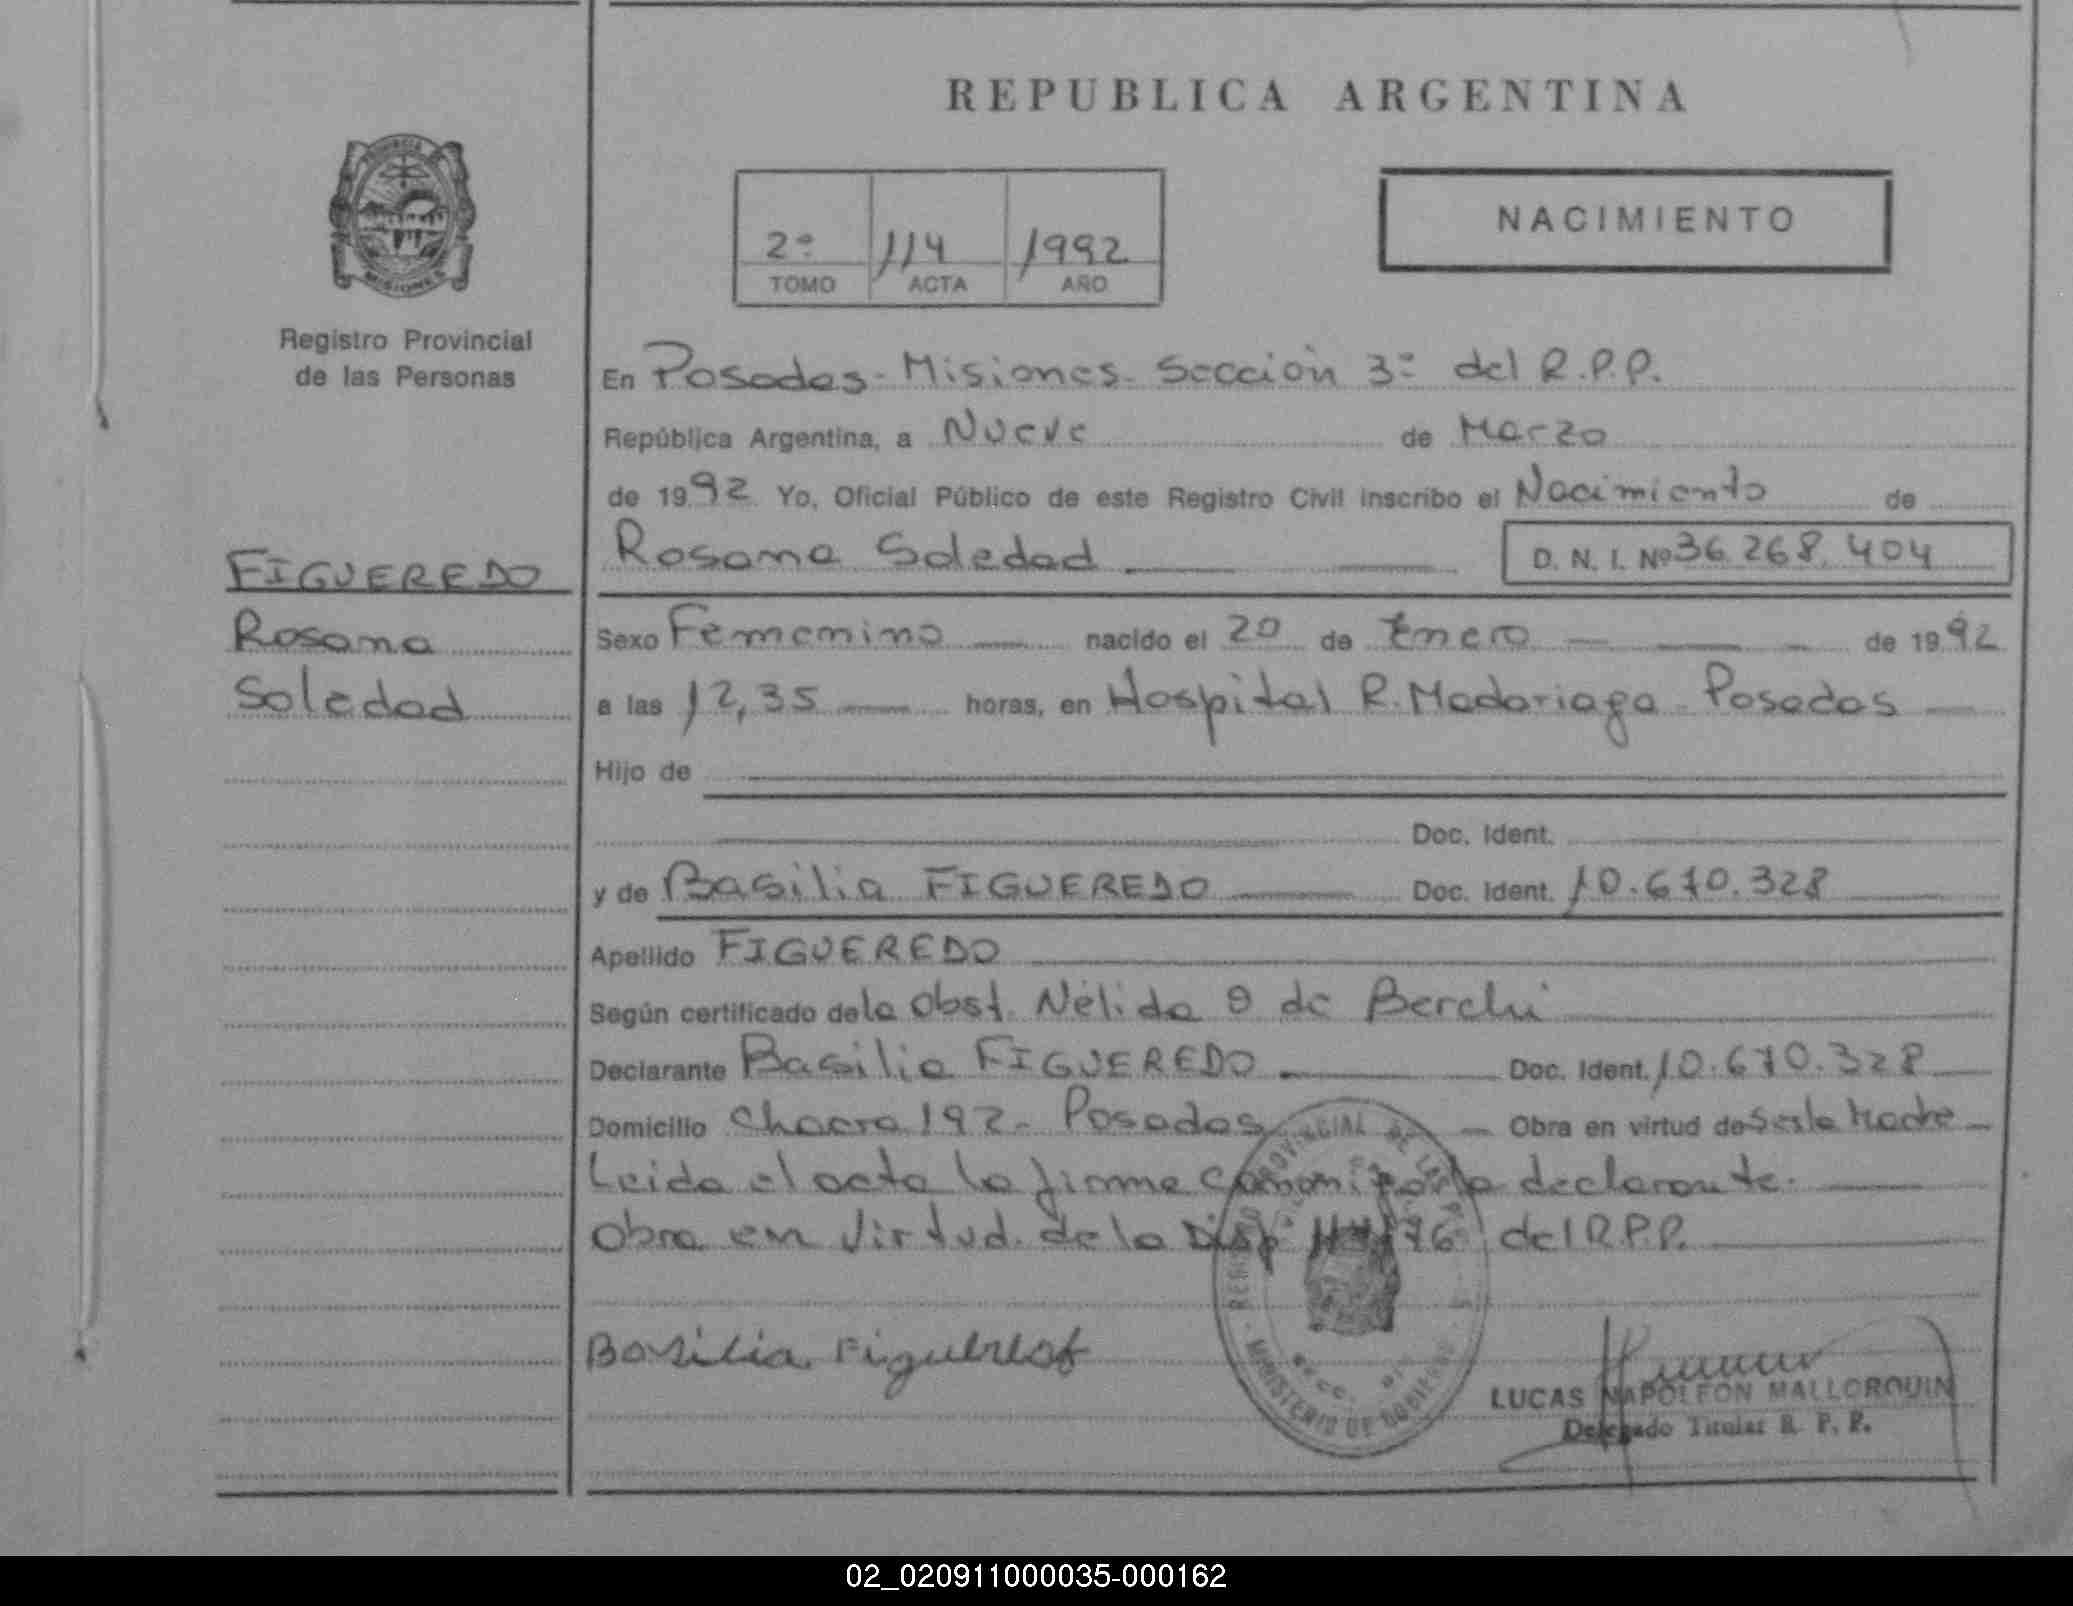 REPUBLICA ARGENTINA
NACIMIENTO
2º 114 1992
TOMO ACTA AÑO
PROVINCIA DE
MISIONES
Registro Provincial
de las Personas
En Posadas - Misiones - Sección 3º del R.P.P.
República Argentina, a Nueve de Marzo
de 1992 Yo, Oficial Público de este Registro Civil inscribo el Nacimiento de
Rosana Soledad D. N. I. Nº 36.268.404
FIGUEREDO
Rosana
Soledad
Sexo Femenino nacido el 20 de Enero de 1992
a las 12,35 horas, en Hospital R. Madariaga - Posadas
Hijo de
Doc. Ident.
y de Basilia FIGUEREDO Doc. Ident. 10.670.328
Apellido FIGUEREDO
Según certificado de la Obst. Nélida de Berchi
Declarante Basilia FIGUEREDO Doc. Ident. 10.670.328
Domicilio Chacra 192 - Posadas Obra en virtud de Ser la Madre
Leida el acta la firma la declarante.
Obra en virtud de la Disp 76 del R.P.P.
Basilia Figueredo
LUCAS NAPOLEON MALLORQUIN
Delegado Titular R. P. P.
MINISTERIO DE GOBIERNO
02_020911000035-000162